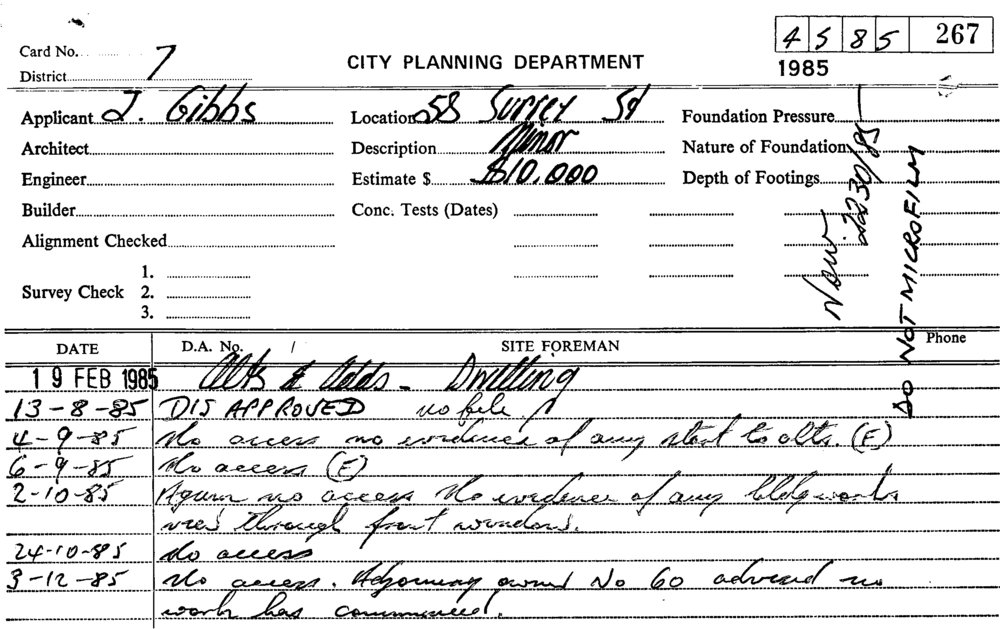 4 5 8 5 267
1985
Card No.
District 7
CITY PLANNING DEPARTMENT
Applicant J. Gibbs
Location 58 Surrey St
Foundation Pressure
Architect
Description Minor
Nature of Foundation
Engineer
Estimate $ $10,000
Depth of Footings
Builder
Conc. Tests (Dates)
Alignment Checked
Survey Check
1.
2.
3.
Now 2230/85
DO NOT MICROFILM
DATE D.A. No. / SITE FOREMAN Phone
19 FEB 1985 Alts & Adds - Dwelling
13-8-85 DISAPPROVED no file
4-9-85 No access no evidence of any start to alts. (E)
6-9-85 No access (E)
2-10-85 Again no access No evidence of any bldg works
view through front windows.
24-10-85 No access
3-12-85 No access. Adjoining owner No 60 advised no
work has commenced.